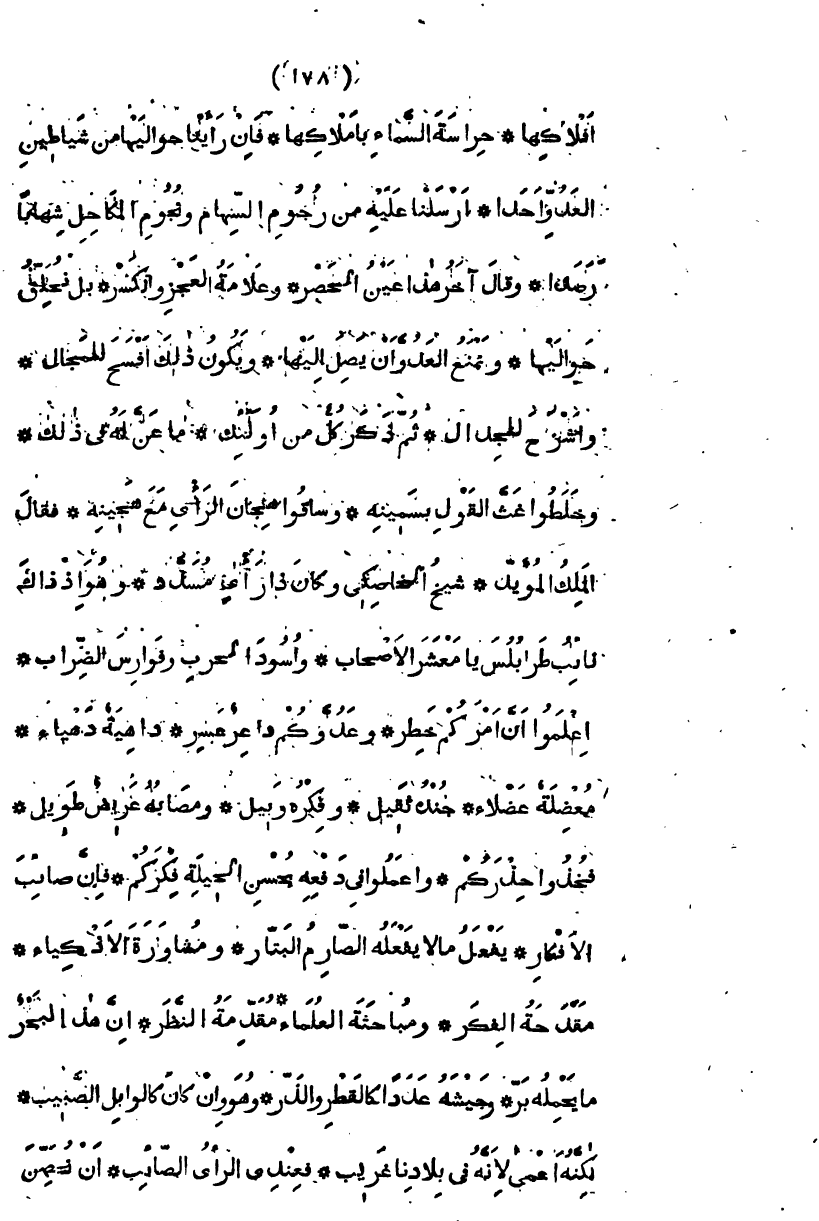 (١٧٨)
اَفْلَاكِها * حِراسَةَ السَّماءِ بِاَمْلاكِها * فَاِنْ رَاَيْنا حوالَيْها من شَياطِينِ
العَدُوِّ اَحَدا * اَرْسَلْنا عَلَيْهِ من رُجُومِ السِّهام ونُجُومِ المَكاحِلِ شِهابًا
رَصَدا * وقالَ آخَرُ هٰذا عَيْنُ الحَصْر * وعَلَامَةُ العَجْزِ والكَسْر * بل نُحَلِّقُ
حَوالَيْها * ونَمْنَعُ العَدُوَّ اَنْ يَصِلَ اِلَيْها * ويَكُونُ ذٰلِكَ اَفْسَحَ للمَجال *
واَشْرَحَ للجِدال * ثُمَّ ذَكَرَ كُلٌّ من اُولٰئِك * ما عَنَّ لَهُ فى ذٰلِك *
وخَلَطُوا غَثَّ القَوْلِ بسَمِينِه * وساقُوا هِجانَ الرَأْىِ مَعَ هَجِينِه * فقالَ
المَلِكُ المُؤَيَّد * شيخُ الخاصِكِى وكانَ ذا رَأْىٍ مُسَدَّد * وهُوَ اِذْ ذاكَ
نائِبُ طَرابُلُسَ يا مَعْشَرَ الاَصْحاب * واُسُودَ الحربِ وفَوارِسَ الضِّراب *
اِعْلَمُوا اَنَّ اَمْرَكُمْ خَطِر * وعَدُوَّكُمْ داعِرٌ عَسِر * داهِيَةٌ دَهْياء *
مُعْضِلَةٌ عَضْلاء * جُنْدُهُ ثَقِيل * وفِكْرُهُ وَبِيل * ومصَابُهُ عَرِيضٌ طَوِيل *
فخُذُوا حِذْرَكُمْ * واعمَلُوا فى دَفْعِهِ بِحُسْنِ الحِيلَةِ فِكْرَكُمْ * فاِنَّ صائِبَ
الاَفْكارِ * يَفْعَلُ مالا يَفْعَلُه الصّارِمُ البَتّار * ومُشاوَرَةَ الاَذْكِياء *
مَقْدَحَةُ الفِكَر * ومُباحَثَةَ العُلَماء * مُقَدِّمَةُ النَّظَر * اِنَّ هٰذا البَحْرَ
ما يَحْمِلُه بَرّ * وجَيْشَهُ عَدَدًا كالقَطْرِ والذَّرّ * وهُوَ وَاِنْ كانَ كالوابِلِ الصَّبِيب *
لٰكِنَّهُ اَعْمَى لِاَنَّهُ فى بِلادِنا غَرِيب * فعِنْدِى الرأىُ الصّائِب * اَنْ نُحَصِّنَ